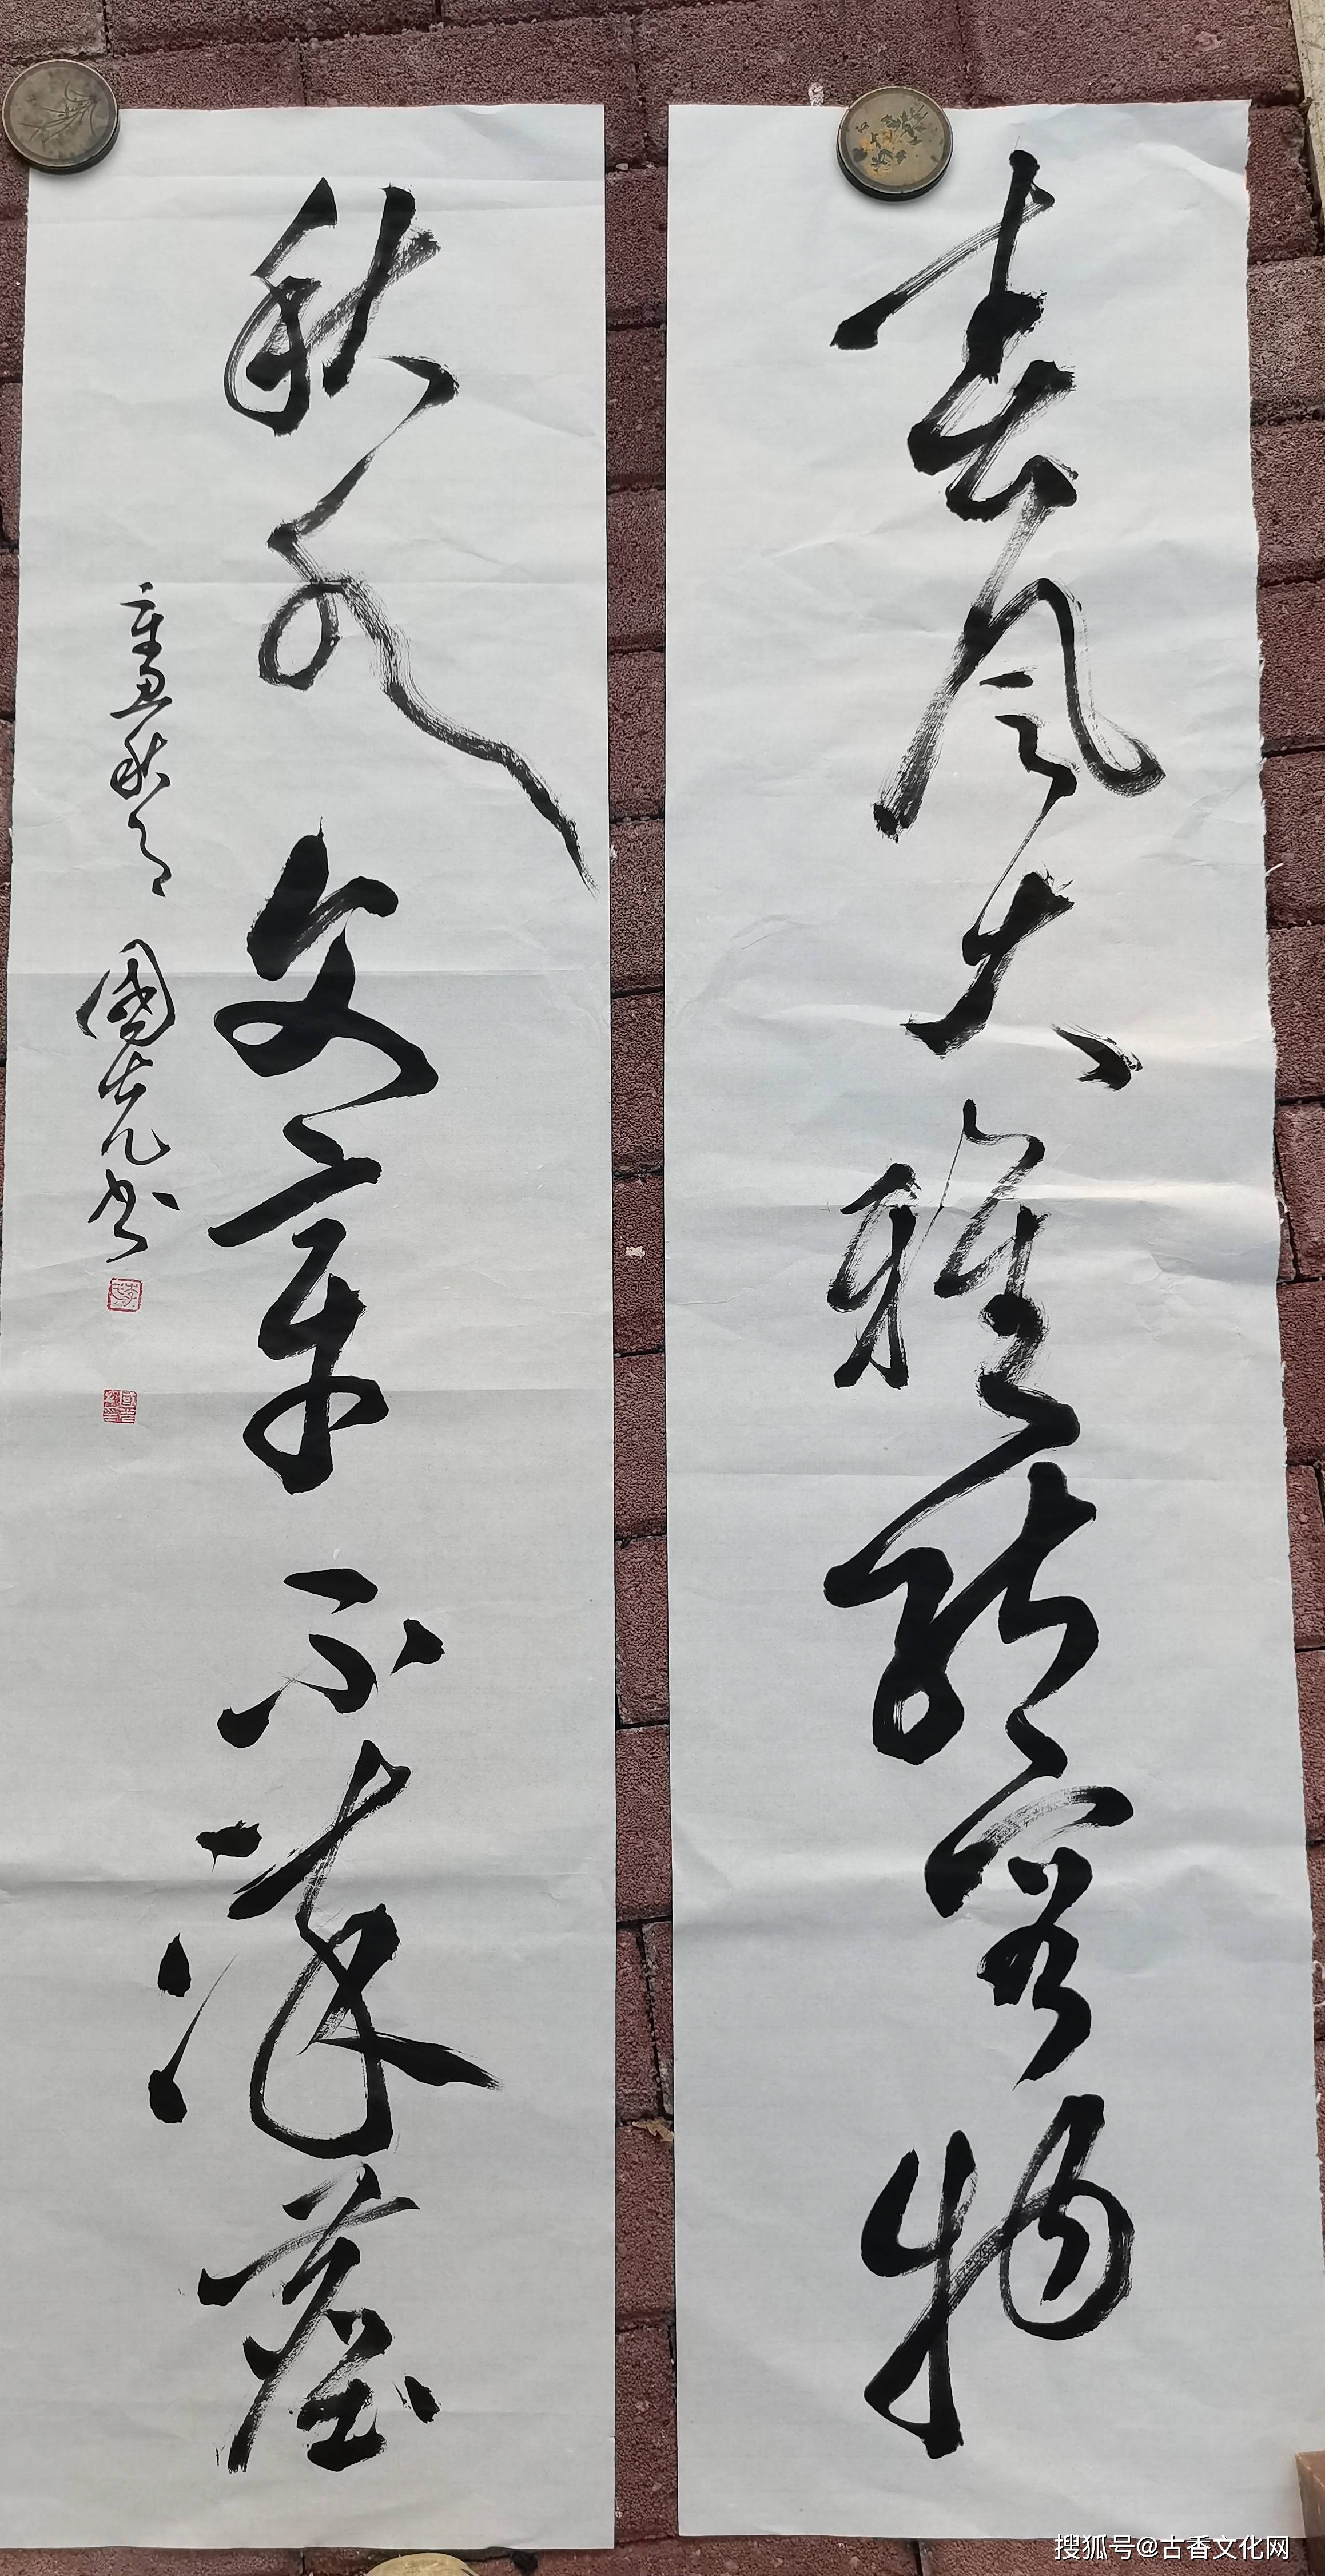 春风大雅能容物
秋水文章不染塵
辛丑秋月 國光书
搜狐号@古香文化网